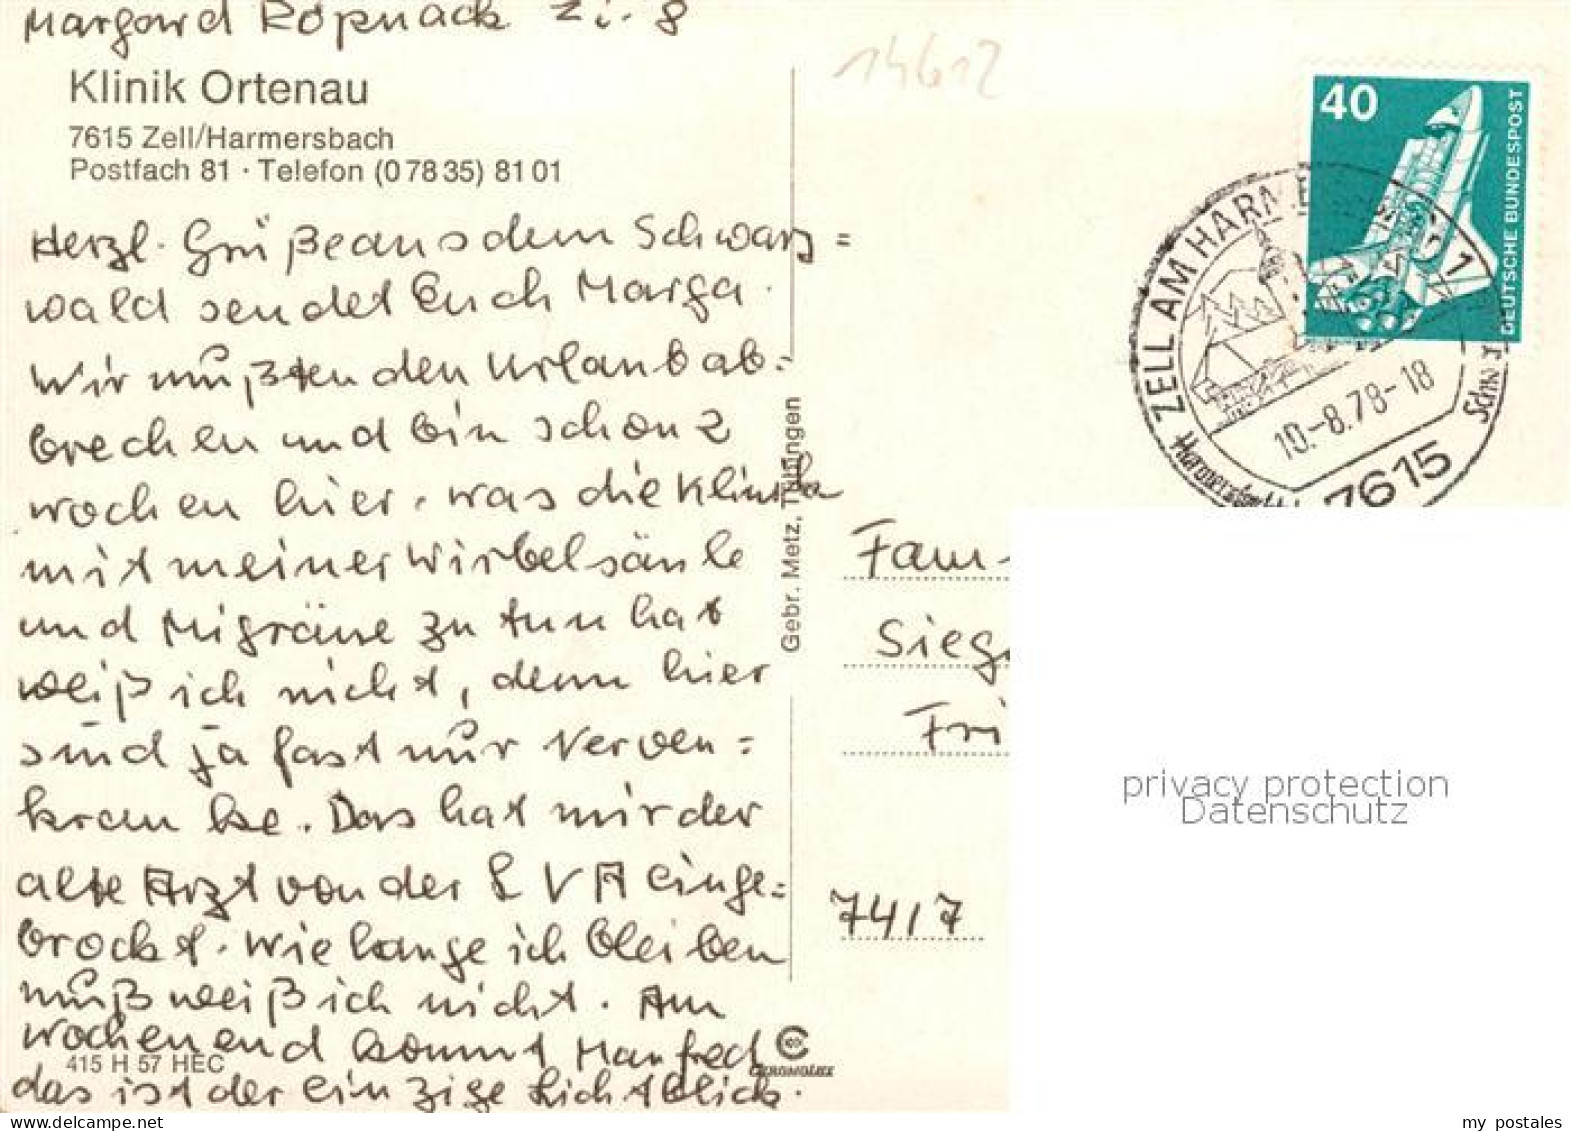 Margard Röpnack Zi. 8
Klinik Ortenau
7615 Zell/Harmersbach
Postfach 81 · Telefon (0 78 35) 81 01
Herzl. Grüße aus dem Schwarz=
wald sendet Euch Marga.
Wir mußten den Urlaub ab-
brechen und bin schon 2
Wochen hier. was die Klinik
mit meiner Wirbelsäule
und Migräne zu tun hat
weiß ich nicht, denn hier
sind ja fast nur Nerven=
kranke. Das hat mir der
alte Arzt von der LVA einge=
brockt. Wie lange ich bleiben
muß weiß ich nicht. Am
Wochenend kommt Manfred
das ist der einzige Lichtblick.
415 H 57 HEC
CHROMOLUX
Gebr. Metz, Tübingen
14612
40
DEUTSCHE BUNDESPOST
ZELL AM HARMERSBACH 1
10.-8.78-18
7615
Fam.
Sieg
Fri
7417
privacy protection
Datenschutz
my postales